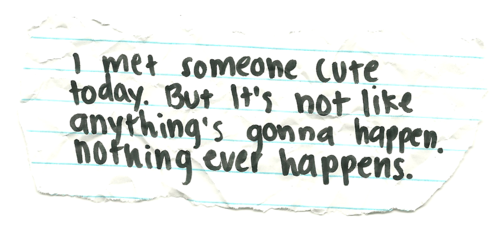 I met someone cute
today. But It's not like
anything's gonna happen.
nothing ever happens.